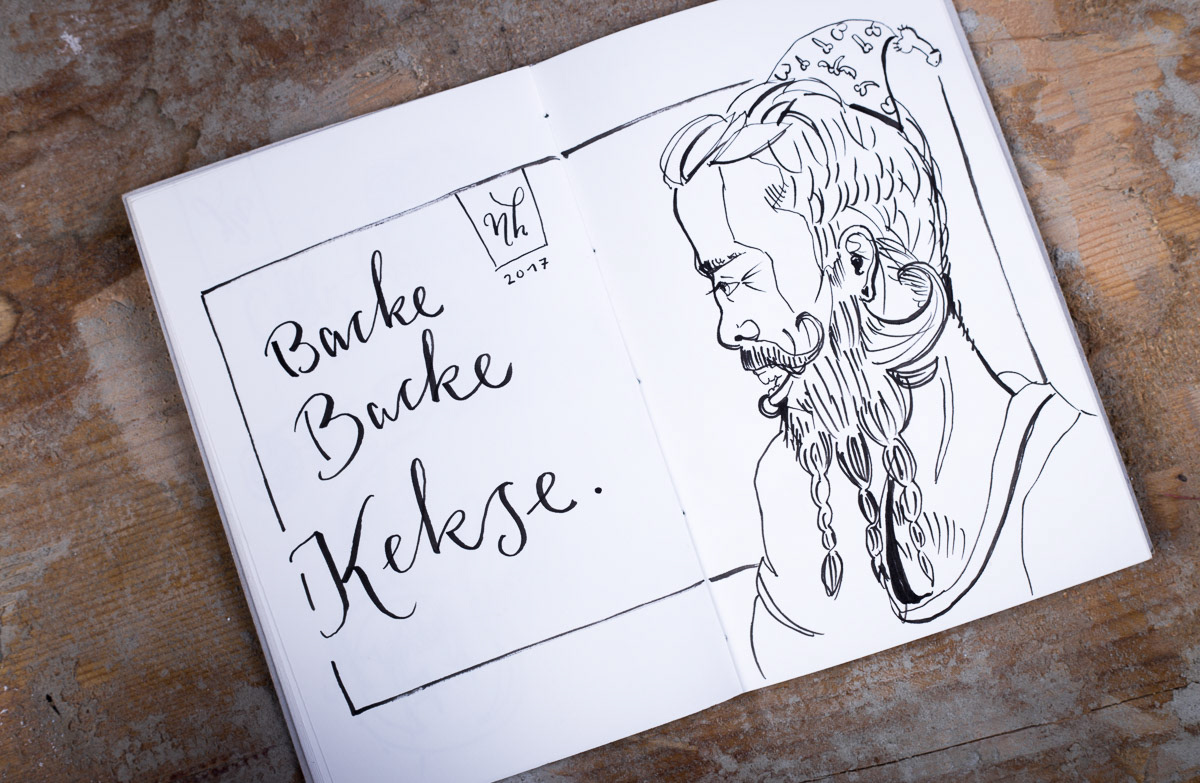 Nh
2017
Backe
Backe
Kekse.